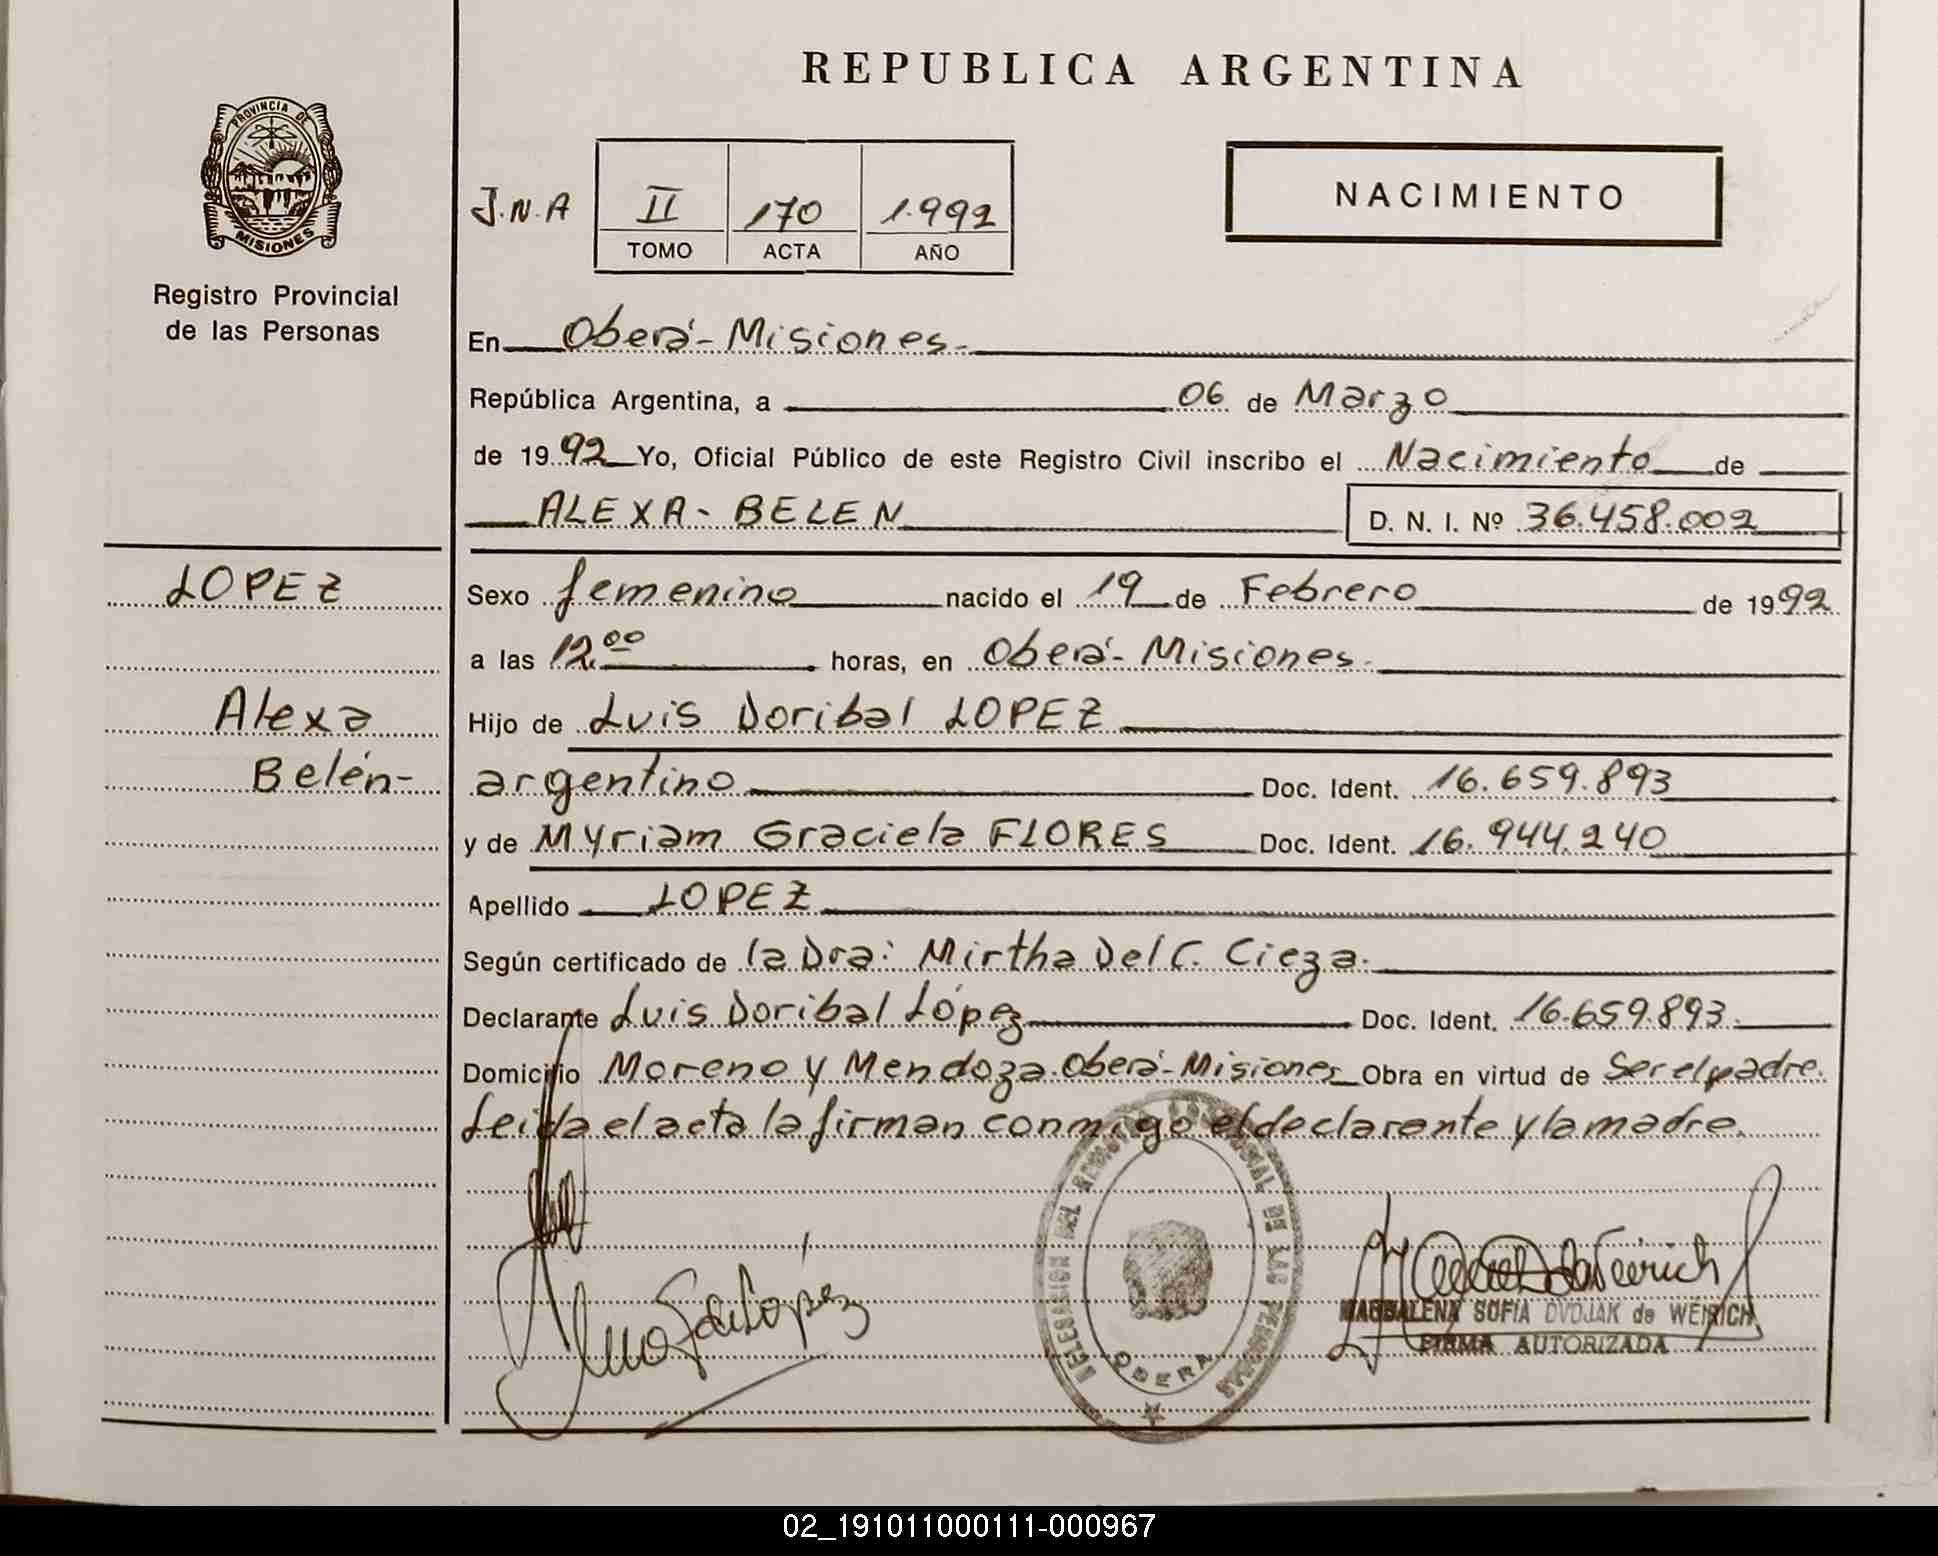 REPUBLICA ARGENTINA
PROVINCIA DE
MISIONES
Registro Provincial
de las Personas
J.N.A
II 170 1.992
TOMO ACTA AÑO
NACIMIENTO
En Oberá-Misiones-
República Argentina, a 06 de Marzo
de 1992 Yo, Oficial Público de este Registro Civil inscribo el Nacimiento de
ALEXA-BELEN D. N. I. Nº 36.458.002
LOPEZ
Alexa
Belén-
Sexo femenino nacido el 19 de Febrero de 1992
a las 12.00 horas, en Oberá-Misiones-
Hijo de Luis Doribal LOPEZ
argentino Doc. Ident. 16.659.893
y de Myriam Graciela FLORES Doc. Ident. 16.944.240
Apellido LOPEZ
Según certificado de la Dra: Mirtha Del C. Cieza.
Declarante Luis Doribal López Doc. Ident. 16.659.893.
Domicilio Moreno y Mendoza-Oberá-Misiones Obra en virtud de Ser el padre.
Leida el acta la firman conmigo el declarante y la madre.
DELEGACION DEL REGISTRO PROVINCIAL DE LAS PERSONAS
OBERA
de López
MAGDALENA SOFIA DVOJAK de WEIRICH
FIRMA AUTORIZADA
02_191011000111-000967